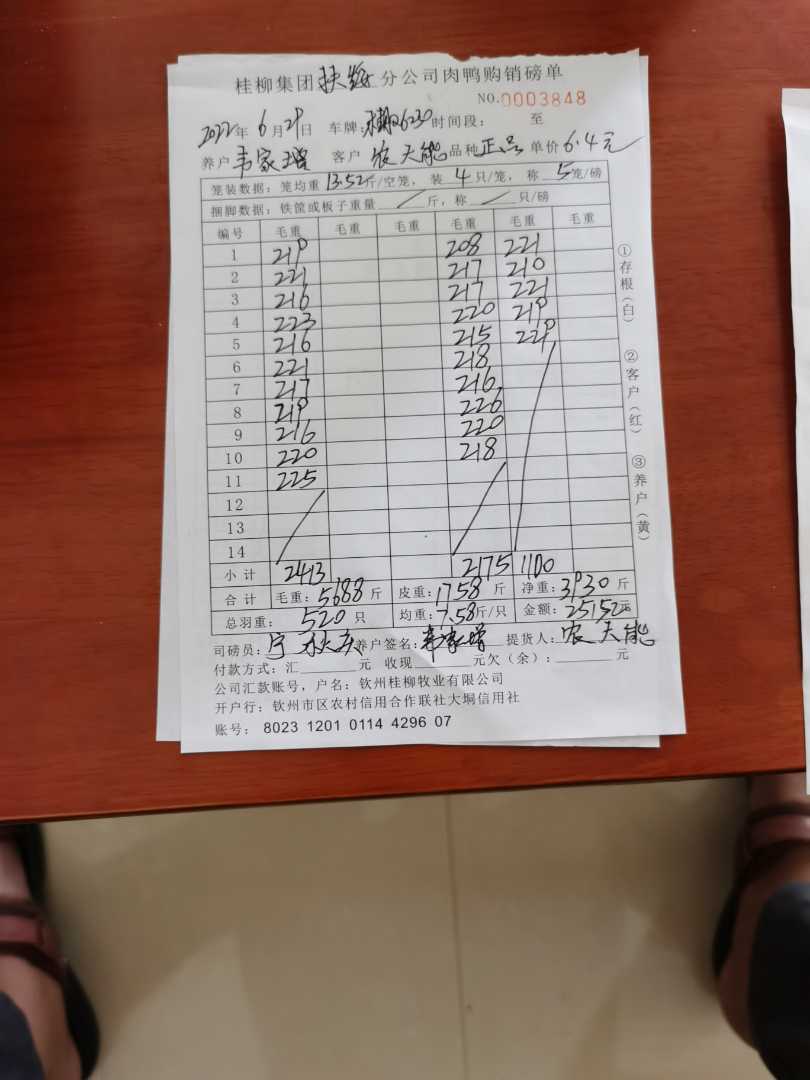 桂柳集团扶绥分公司肉鸭购销磅单
NO.0003848
2022年6月29日 车牌: 时间段: 至
养户韦家增 客户农天能 品种正品 单价6.4元
笼装数据: 笼均重13.52斤/空笼, 装4只/笼, 称5笼/磅
捆脚数据: 铁筐或板子重量/斤, 称/只/磅
编号 毛重 毛重 毛重 毛重 毛重 毛重
1 219 208 221
2 221 217 210
3 216 217 221
4 223 220 219
5 216 215 229
6 221 218
7 217 216
8 219 226
9 216 220
10 220 218
11 225
12
13
14
小计 2413 2175 1100
合计 毛重: 5688斤 皮重: 1758斤 净重: 3930斤
总羽重: 520只 均重: 7.58斤/只 金额: 25152元
司磅员: 养户签名: 韦家增 提货人: 农天能
付款方式: 汇 元 收现 元欠(余): 元
公司汇款账号, 户名: 钦州桂柳牧业有限公司
开户行: 钦州市区农村信用合作联社大垌信用社
账号: 8023 1201 0114 4296 07
①存根(白)
②客户(红)
③养户(黄)